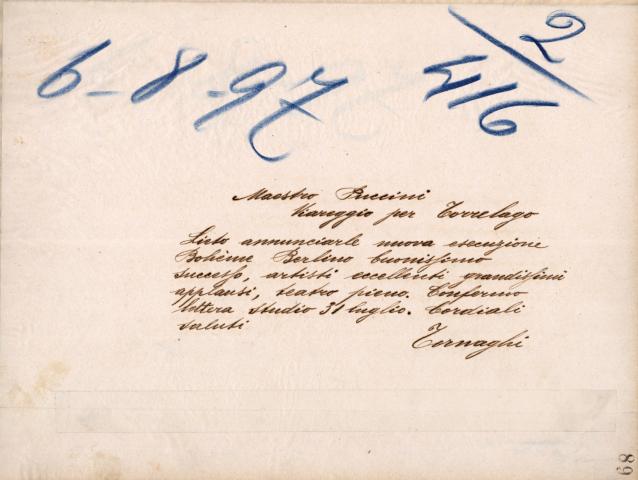 2/416
6-8-97
Maestro Puccini
Viareggio per Torrelago
Lieto annunciarle nuova esecuzione
Bohème Berlino buonissimo
successo, artisti eccellenti grandissimi
applausi, teatro pieno. Confermo
lettera studio 31 luglio. Cordiali
saluti
Tornaghi
68